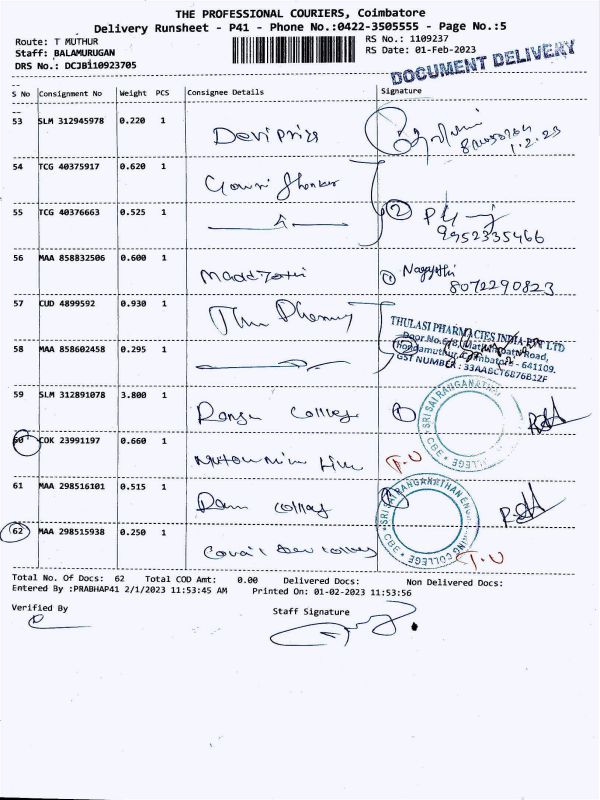 THE PROFESSIONAL COURIERS, Coimbatore
Delivery Runsheet - P41 - Phone No.:0422-3505555 - Page No.:5
Route: T MUTHUR
RS No.: 1109237
Staff: BALAMURUGAN
RS Date: 01-Feb-2023
DRS No.: DCJB110923705
DOCUMENT DELIVERY
S No Consignment No Weight PCS Consignee Details Signature
53 SLM 312945978 0.220 1 Devi priya
1.2.23
54 TCG 40375917 0.620 1 Gowri Shankar
55 TCG 40376663 0.525 1 2
9952335466
56 MAA 858832506 0.600 1 1
8072290823
57 CUD 4899592 0.930 1
THULASI PHARMACIES INDIA PVT LTD
58 MAA 858602458 0.295 1
Coimbatore - 641109.
GST NUMBER : 33AABCT6876B1ZF
59 SLM 312891078 3.800 1 college 1
SRI SAI RANGANATHAN
COLLEGE * CBE
60 COK 23991197 0.660 1
T.U
61 MAA 298516101 0.515 1 college
SRI SAI RANGANATHAN ENGINEERING COLLEGE * CBE
62 MAA 298515938 0.250 1
T.U
Total No. Of Docs: 62 Total COD Amt: 0.00 Delivered Docs: Non Delivered Docs:
Entered By :PRABHAP41 2/1/2023 11:53:45 AM Printed On: 01-02-2023 11:53:56
Verified By
Staff Signature